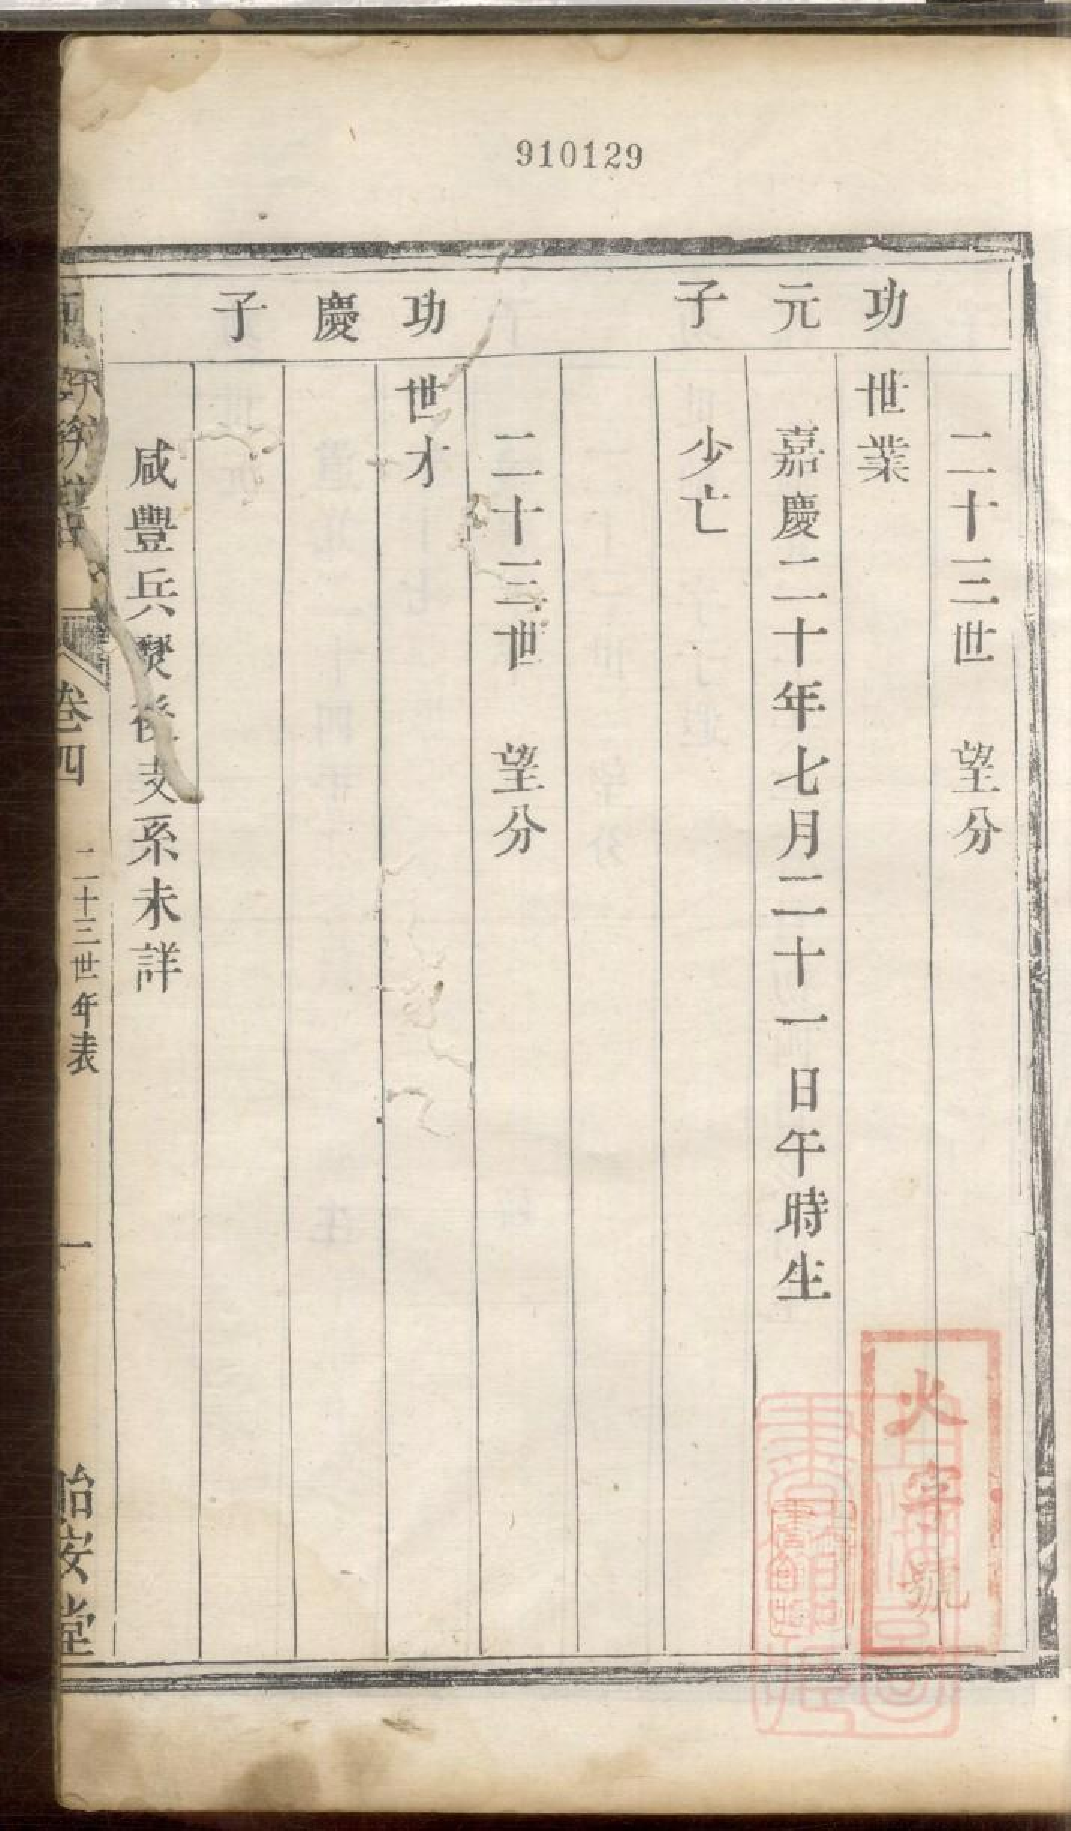 910129
功元子
二十三世 望分
世業
嘉慶二十年七月二十一日午時生
少亡
功慶子
二十三世 望分
世才
咸豐兵燹後支系未詳
卷四
二十三世年表
一
貽安堂
火字號